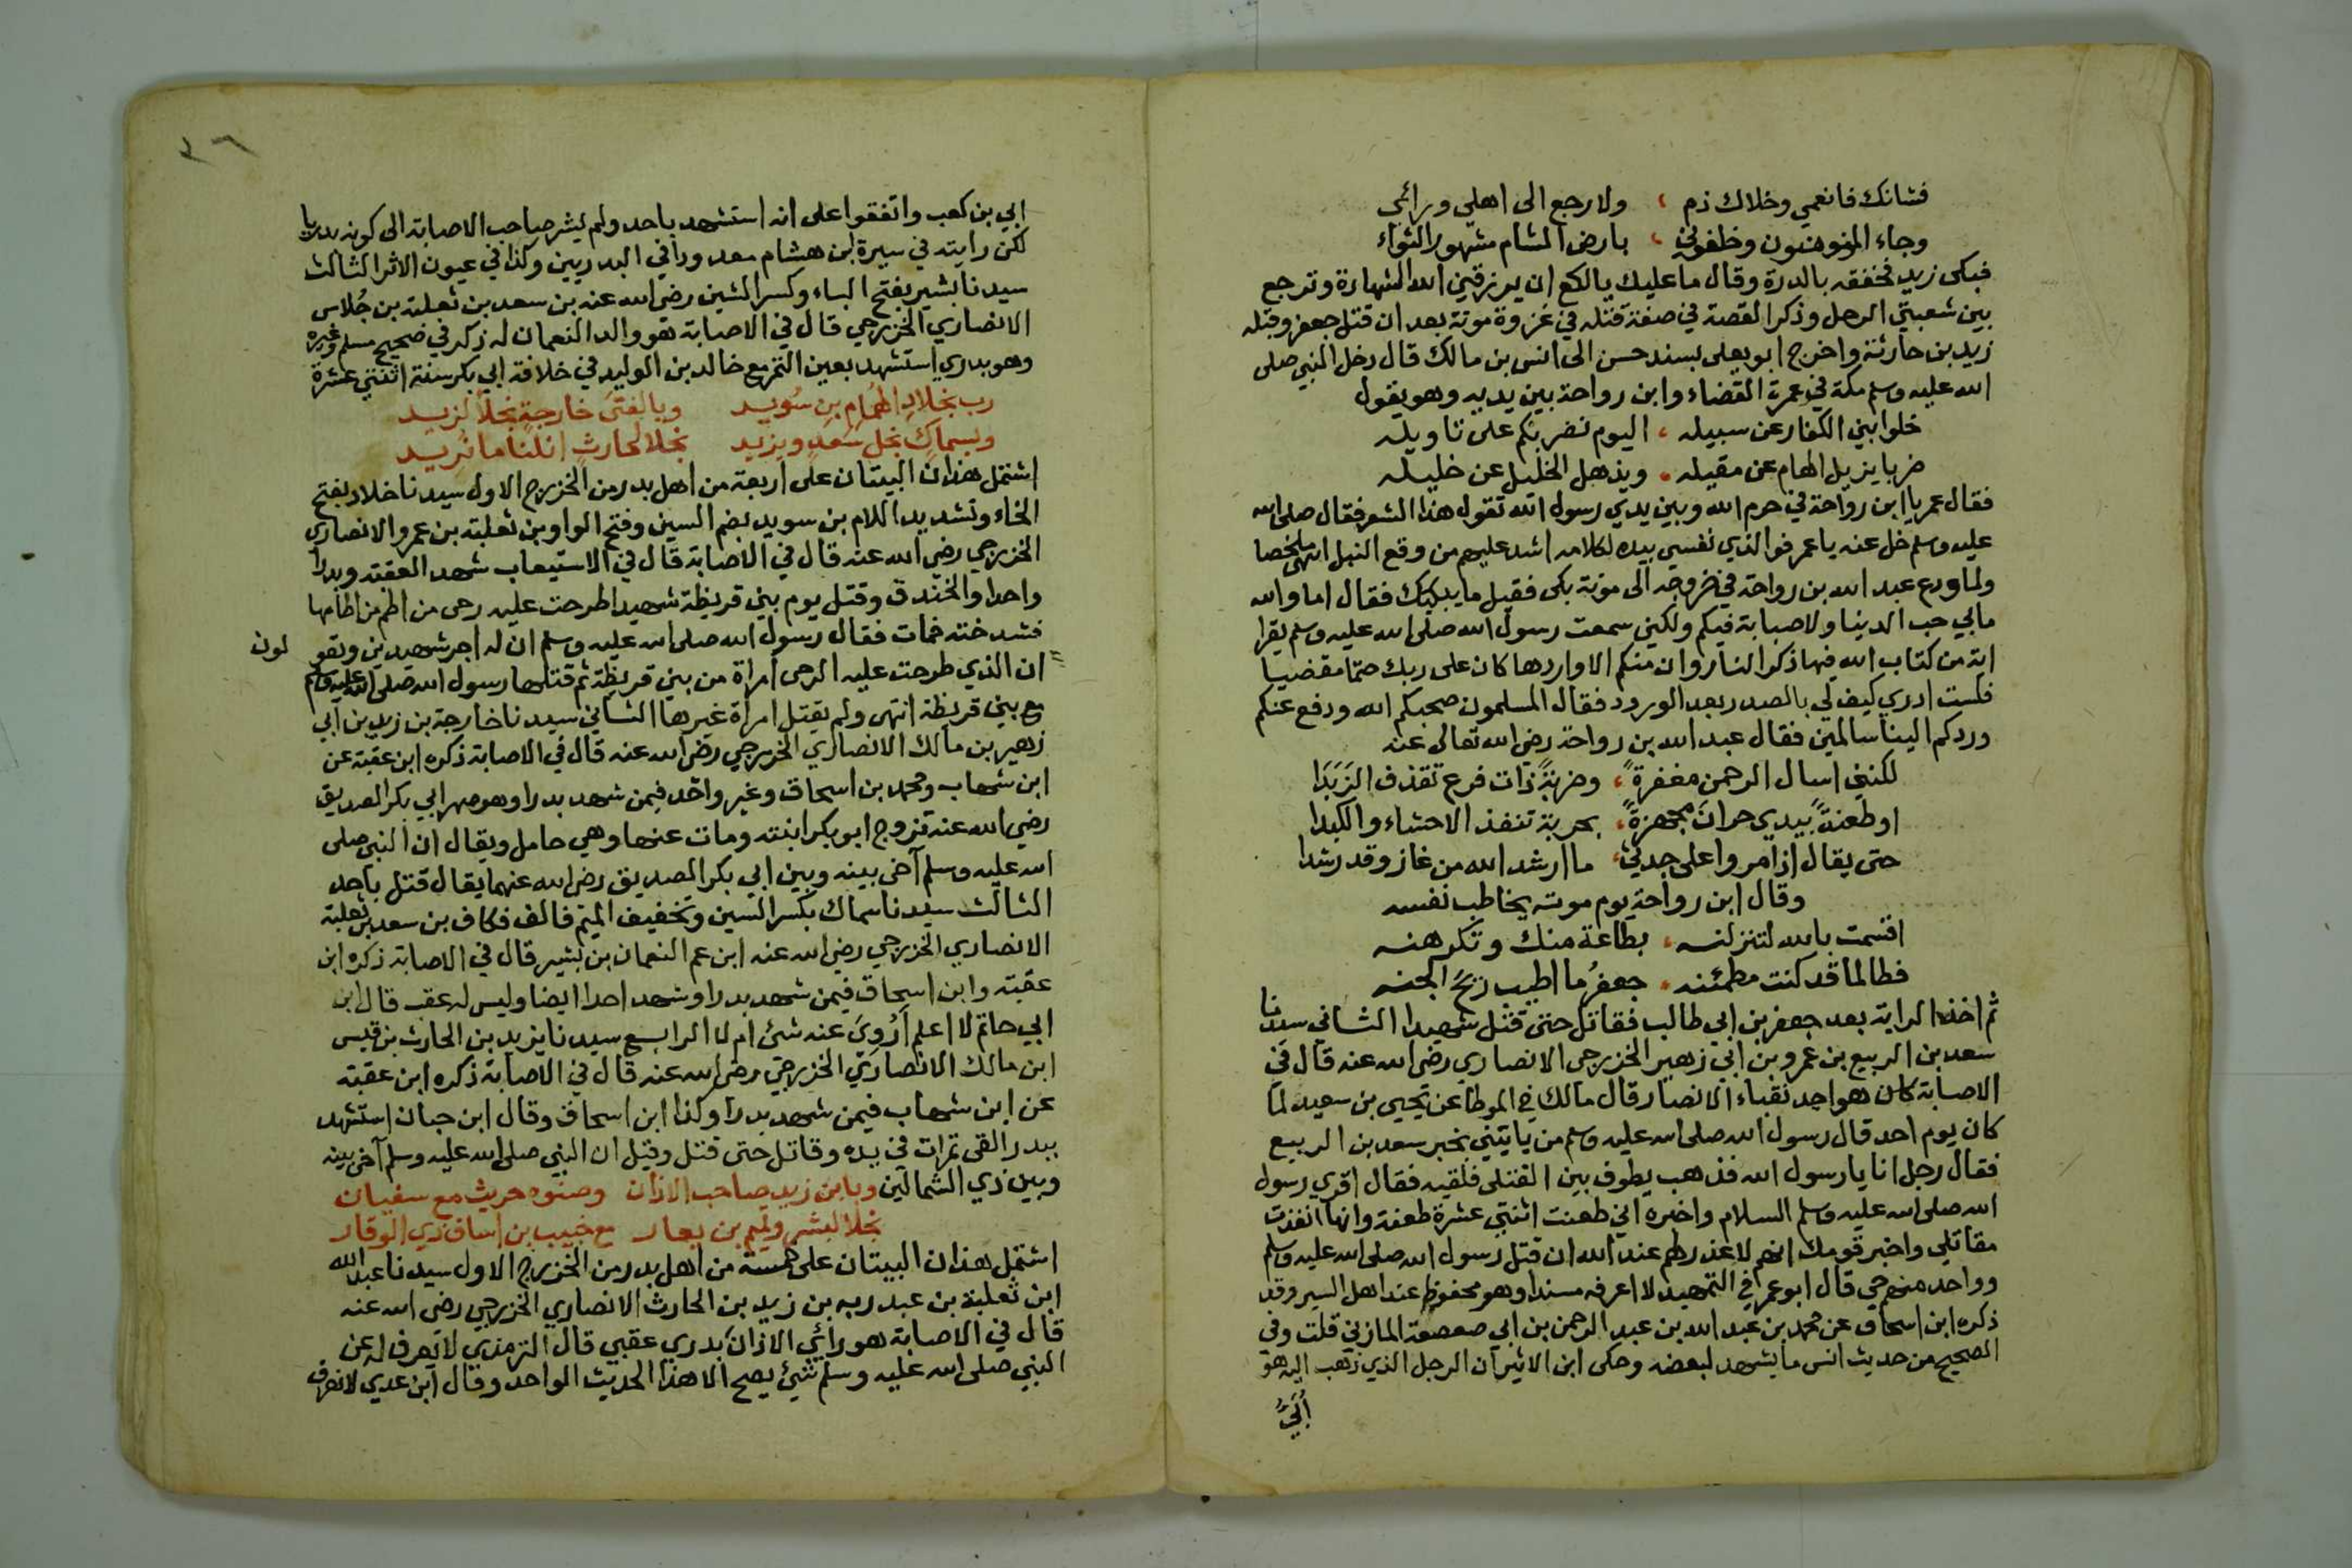 فشانك فانعمي وخلاك ذم ، ولا رجع الى اهلي ورائي
وجاء المؤمنون وخلفوني ، بارض الشام مشهور الثواء
فبكى زيد فخفقه بالدرة وقال ما عليك يا لكع ان يرزقني الله الشهادة وترجع
بين شعبتي الرحل وذكر القصة في صفة قتله في غزوة موتة بعد ان قتل جعفر وقبله
زيد بن حارثة واخرج ابو يعلى بسند حسن الى انس بن مالك قال دخل النبي صلى
الله عليه وسلم مكة في عمرة القضاء وابن رواحة بين يديه وهو يقول
خلوا بني الكفار عن سبيله ، اليوم نضربكم على تاويله
ضربا يزيل الهام عن مقيله ، ويذهل الخليل عن خليله
فقال عمر يا ابن رواحة في حرم الله وبين يدي رسول الله تقول هذا الشعر فقال صلى الله
عليه وسلم خل عنه يا عمر فوالذي نفسي بيده لكلامه اشد عليهم من وقع النبل انتهى ملخصا
ولما ودع عبد الله بن رواحة في خروجه الى موتة بكى فقيل ما يبكيك فقال اما والله
ما بي حب الدنيا ولا صبابة فيكم ولكني سمعت رسول الله صلى الله عليه وسلم يقرا
اية من كتاب الله فيها ذكر النار وان منكم الا واردها كان على ربك حتما مقضيا
فلست ادري كيف لي بالصدر بعد الورود فقال المسلمون صحبكم الله ودفع عنكم
وردكم الينا سالمين فقال عبد الله بن رواحة رضي الله تعالى عنه
لكنني اسال الرحمن مغفرةً ، وضربةً ذات فرع تقذف الزَبَدَا
او طعنةً بيدي حرانَ مجهزةً ، بحربة تنفذ الاحشاء والكبدا
حتى يقال اذا مروا على جدثي ، ما ارشد الله من غاز وقد رشدا
وقال ابن رواحة يوم موته يخاطب نفسه
اقسمت بالله لتنزلنه ، بطاعة منك وتكرهنه
فطالما قد كنت مطمئنه ، جعفرُ ما اطيب ريحَ الجنه
ثم اخذ الراية بعد جعفر بن ابي طالب فقاتل حتى قتل شهيدا الثاني سيدنا
سعد بن الربيع بن عمرو بن ابي زهير الخزرجي الانصاري رضي الله عنه قال في
الاصابة كان هو احد نقباء الانصار قال مالك في الموطا عن يحيى بن سعيد لما
كان يوم احد قال رسول الله صلى الله عليه وسلم من ياتيني بخبر سعد بن الربيع
فقال رجل انا يا رسول الله فذهب يطوف بين القتلى فلقيه فقال اقري رسول
الله صلى الله عليه وسلم السلام واخبره اني طعنت اثنتي عشرة طعنة وانها انفذت
مقاتلي واخبر قومك انهم لا عذر لهم عند الله ان قتل رسول الله صلى الله عليه وسلم
وواحد منهم حي قال ابو عمر في التمهيد لا اعرفه مسندا وهو محفوظ عند اهل السير وقد
ذكره ابن اسحاق عن محمد بن عبد الله بن عبد الرحمن بن ابي صعصعة المازني قلت وفي
الصحيح من حديث انس ما يشهد لبعضه وحكى ابن الاثير ان الرجل الذي ذهب اليه هو
اُبَيُّ
٣٦
ابي بن كعب واتفقوا على انه استشهد باحد ولم يشر صاحب الاصابة الى كونه بدريا
لكن رايته في سيرة ابن هشام معدودا في البدريين وكذا في عيون الاثر الثالث
سيدنا بشير بفتح الباء وكسر الشين رضي الله عنه بن سعد بن ثعلبة بن جُلاس
الانصاري الخزرجي قال في الاصابة هو والد النعمان له ذكر في صحيح مسلم وغيره
وهو بدري استشهد بعين التمر مع خالد بن الوليد في خلافة ابي بكر سنة اثنتي عشرة
رب بخلادِ الهُمامِ بن سُويد وبالفتى خارجةٍ نجلا لزيد
وبسماكٍ نجل سَعدٍ ويزيد نجلا لحارثٍ انلنا ما نريد
اشتمل هذان البيتان على اربعة من اهل بدر من الخزرج الاول سيدنا خلاد بفتح
الخاء وتشديد اللام بن سويد بضم السين وفتح الواو بن ثعلبة بن عمرو الانصاري
الخزرجي رضي الله عنه قال في الاصابة قال في الاستيعاب شهد العقبة وبدرا
واحدا والخندق وقتل يوم بني قريظة شهيدا طرحت عليه رحى من اطم من اطامها
فشدخته فمات فقال رسول الله صلى الله عليه وسلم ان له اجر شهيدين ويقولون
ان الذي طرحت عليه الرحى امراة من بني قريظة ثم قتلها رسول الله صلى الله عليه وسلم
مع بني قريظة انتهى ولم يقتل امراة غيرها الثاني سيدنا خارجة بن زيد بن ابي
زهير بن مالك الانصاري الخزرجي رضي الله عنه قال في الاصابة ذكره ابن عقبة عن
ابن شهاب ومحمد بن اسحاق وغير واحد فيمن شهد بدرا وهو صهر ابي بكر الصديق
رضي الله عنه تزوج ابو بكر ابنته ومات عنها وهي حامل ويقال ان النبي صلى
الله عليه وسلم آخى بينه وبين ابي بكر الصديق رضي الله عنهما يقال قتل باحد
الثالث سيدنا سماك بكسر السين وتخفيف الميم فالف فكاف بن سعد بن ثعلبة
الانصاري الخزرجي رضي الله عنه ابن عم النعمان بن بشير قال في الاصابة ذكره ابن
عقبة وابن اسحاق فيمن شهد بدرا وشهد احدا ايضا وليس له عقب قال ابن
ابي حاتم لا اعلم اَرُوِيَ عنه شئ ام لا الرابع سيدنا يزيد بن الحارث بن قيس
ابن مالك الانصاري الخزرجي رضي الله عنه قال في الاصابة ذكره ابن عقبة
عن ابن شهاب فيمن شهد بدرا وكذا ابن اسحاق وقال ابن حبان استشهد
ببدر القى تمرات في يده وقاتل حتى قتل وقيل ان النبي صلى الله عليه وسلم آخى بينه
وبين ذي الشمالين وبابن زيد صاحب الاذان وصنوه حريث مع سفيان
نجلا لبشر وتميم بن يعار مع خبيب بن اساف ذي الوقار
اشتمل هذان البيتان على خمسة من اهل بدر من الخزرج الاول سيدنا عبد الله
ابن ثعلبة بن عبد ربه بن زيد بن الحارث الانصاري الخزرجي رضي الله عنه
قال في الاصابة هو رائي الاذان بدري عقبي قال الترمذي لا يعرف له عن
النبي صلى الله عليه وسلم شئ يصح الا هذا الحديث الواحد وقال ابن عدي لا نعرف